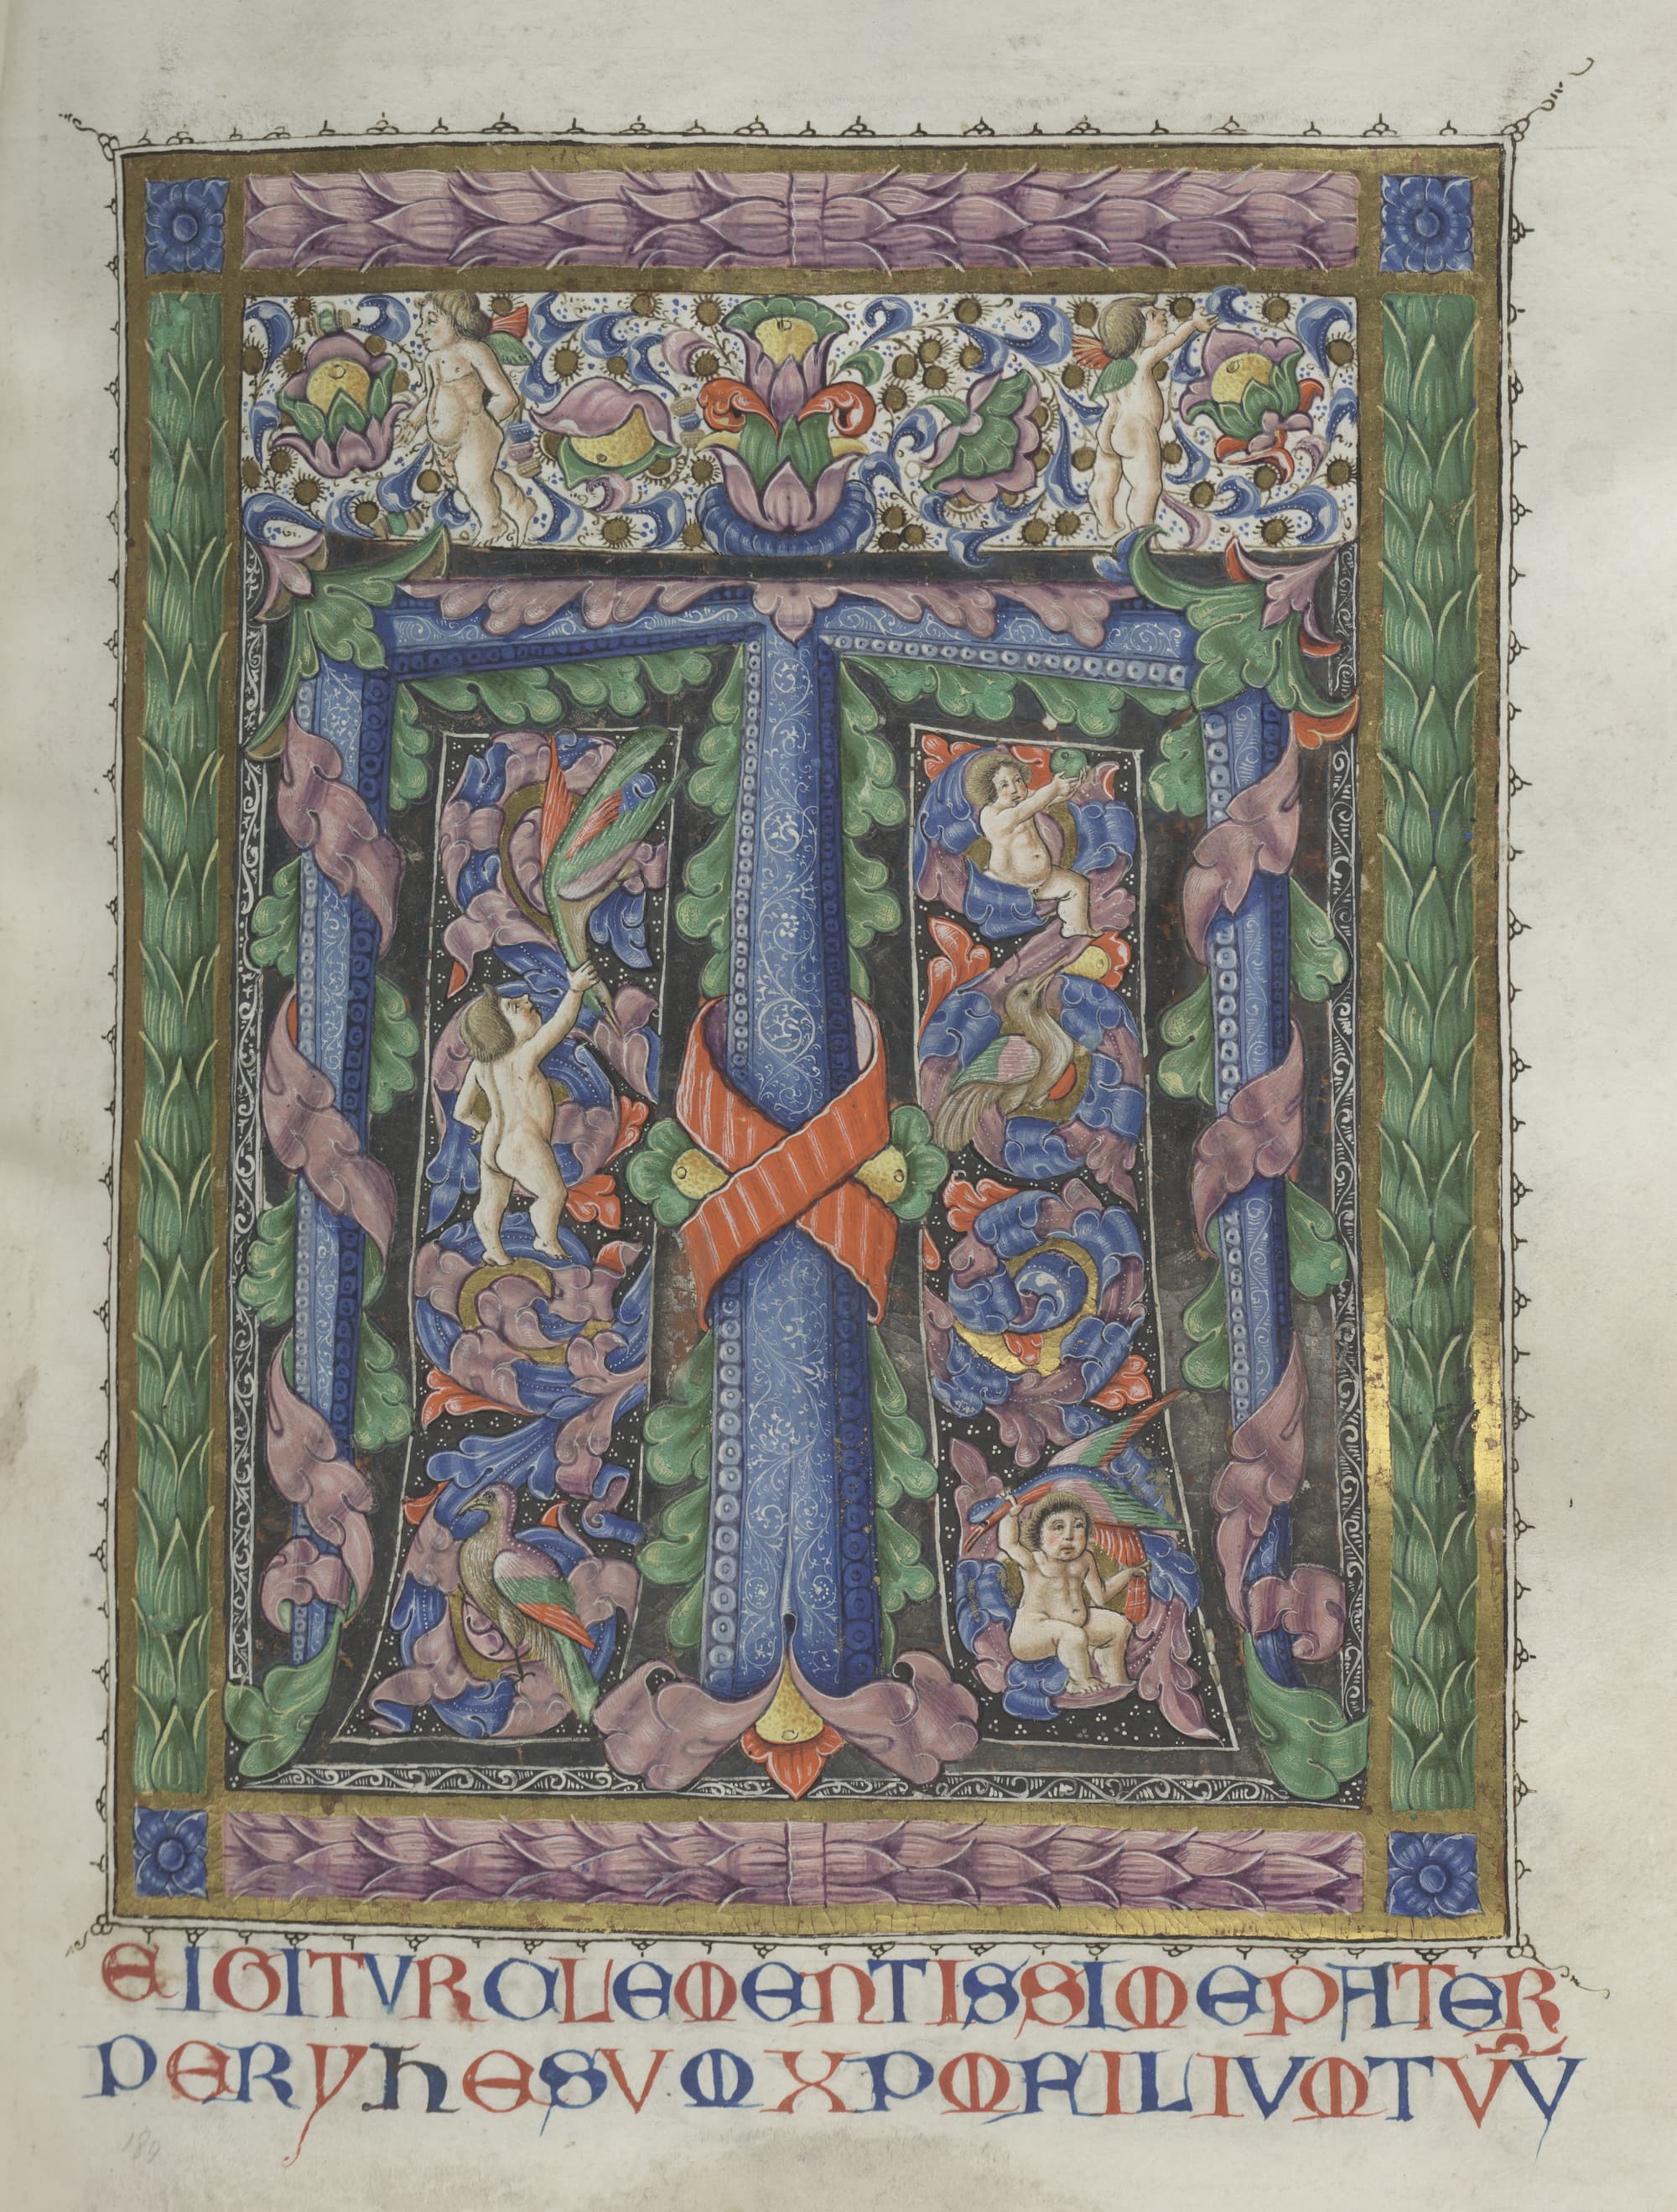 T
EIGITVRCLEMENTISSIMEPATER
PERYHESVMXPMFILIVMTVV̄
189